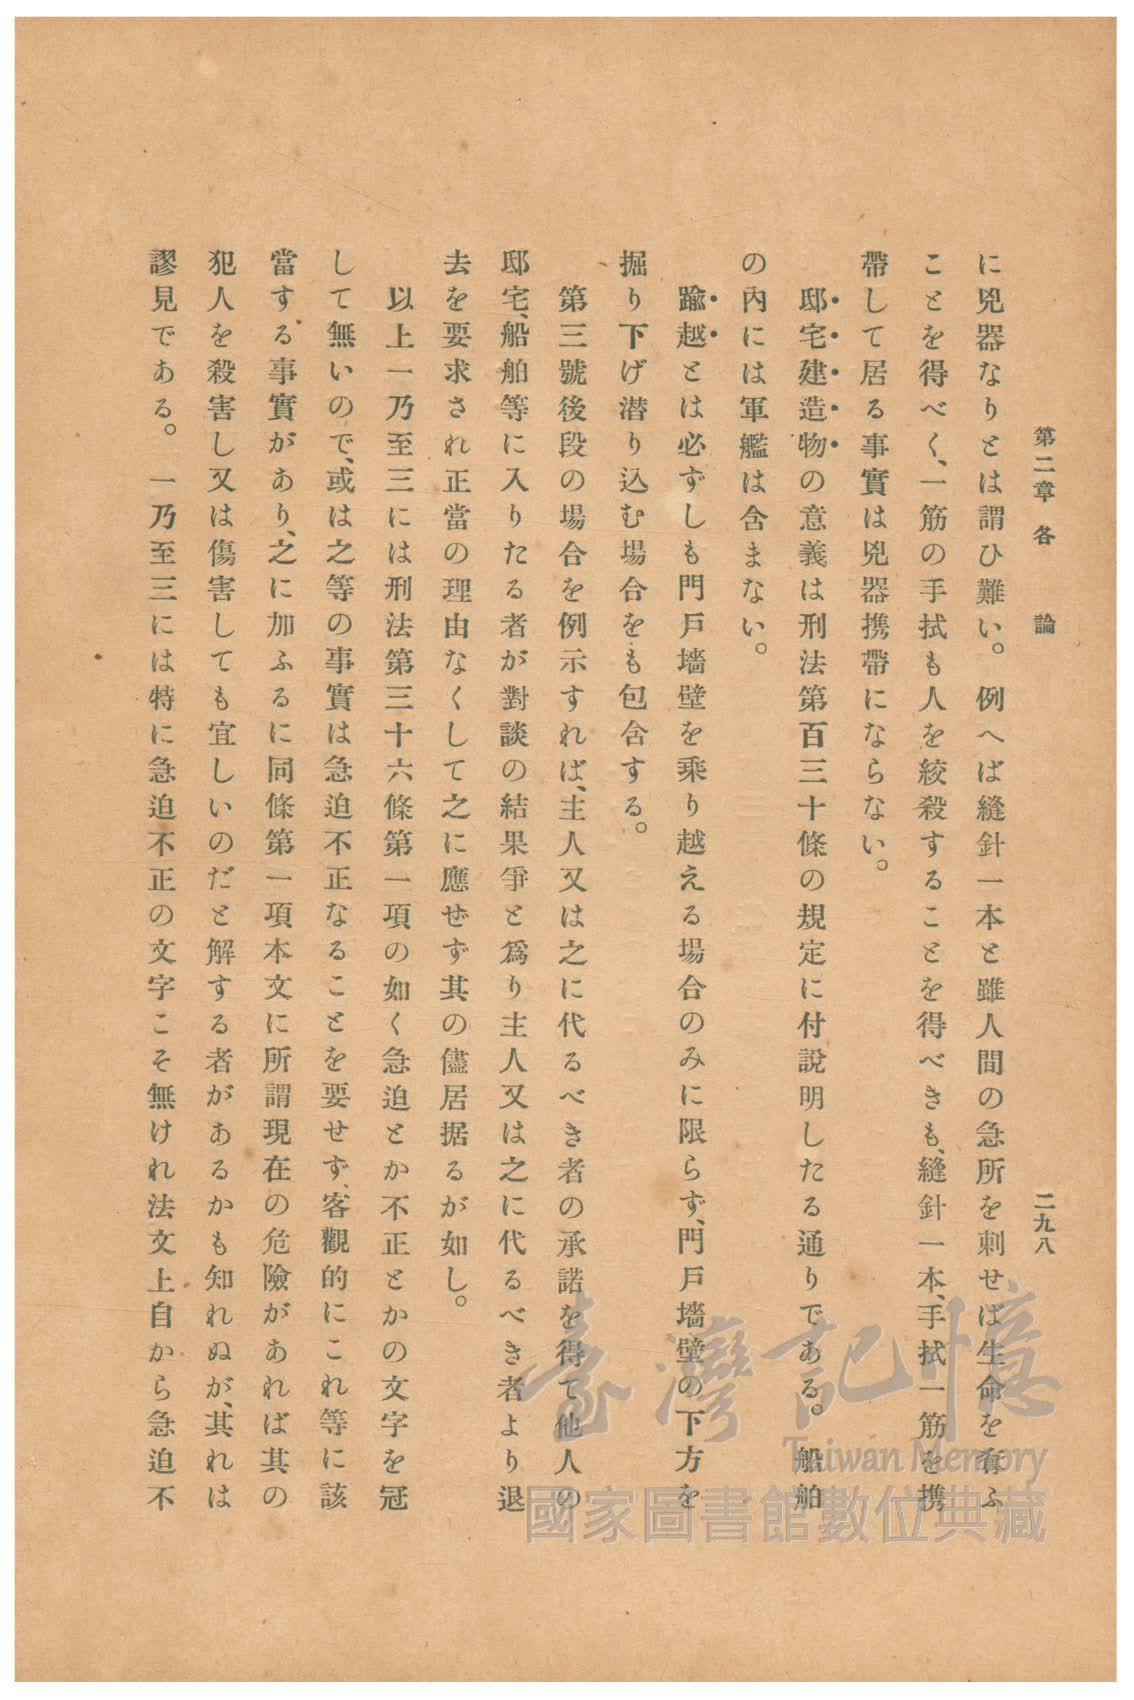 第二章 各論
二九八
に兇器なりとは謂ひ難い。例へば縫針一本と雖人間の急所を刺せば生命を奪ふ
ことを得べく、一筋の手拭も人を絞殺することを得べきも、縫針一本、手拭一筋を携
帶して居る事實は兇器携帶にならない。
邸宅建造物の意義は刑法第百三十條の規定に付說明したる通りである。船舶
の內には軍艦は含まない。
踰越とは必ずしも門戶墻壁を乘り越える場合のみに限らず、門戶墻壁の下方を
掘り下げ潜り込む場合をも包含する。
第三號後段の場合を例示すれば、主人又は之に代るべき者の承諾を得て他人の
邸宅、船舶等に入りたる者が對談の結果爭と爲り主人又は之に代るべき者より退
去を要求され正當の理由なくして之に應ぜず其の儘居据るが如し。
以上一乃至三には刑法第三十六條第一項の如く急迫とか不正とかの文字を冠
して無いので、或は之等の事實は急迫不正なることを要せず、客觀的にこれ等に該
當する事實があり、之に加ふるに同條第一項本文に所謂現在の危險があれば其の
犯人を殺害し又は傷害しても宜しいのだと解する者があるかも知れぬが、其れは
謬見である。一乃至三には特に急迫不正の文字こそ無けれ法文上自から急迫不
臺灣記憶
Taiwan Memory
國家圖書館數位典藏